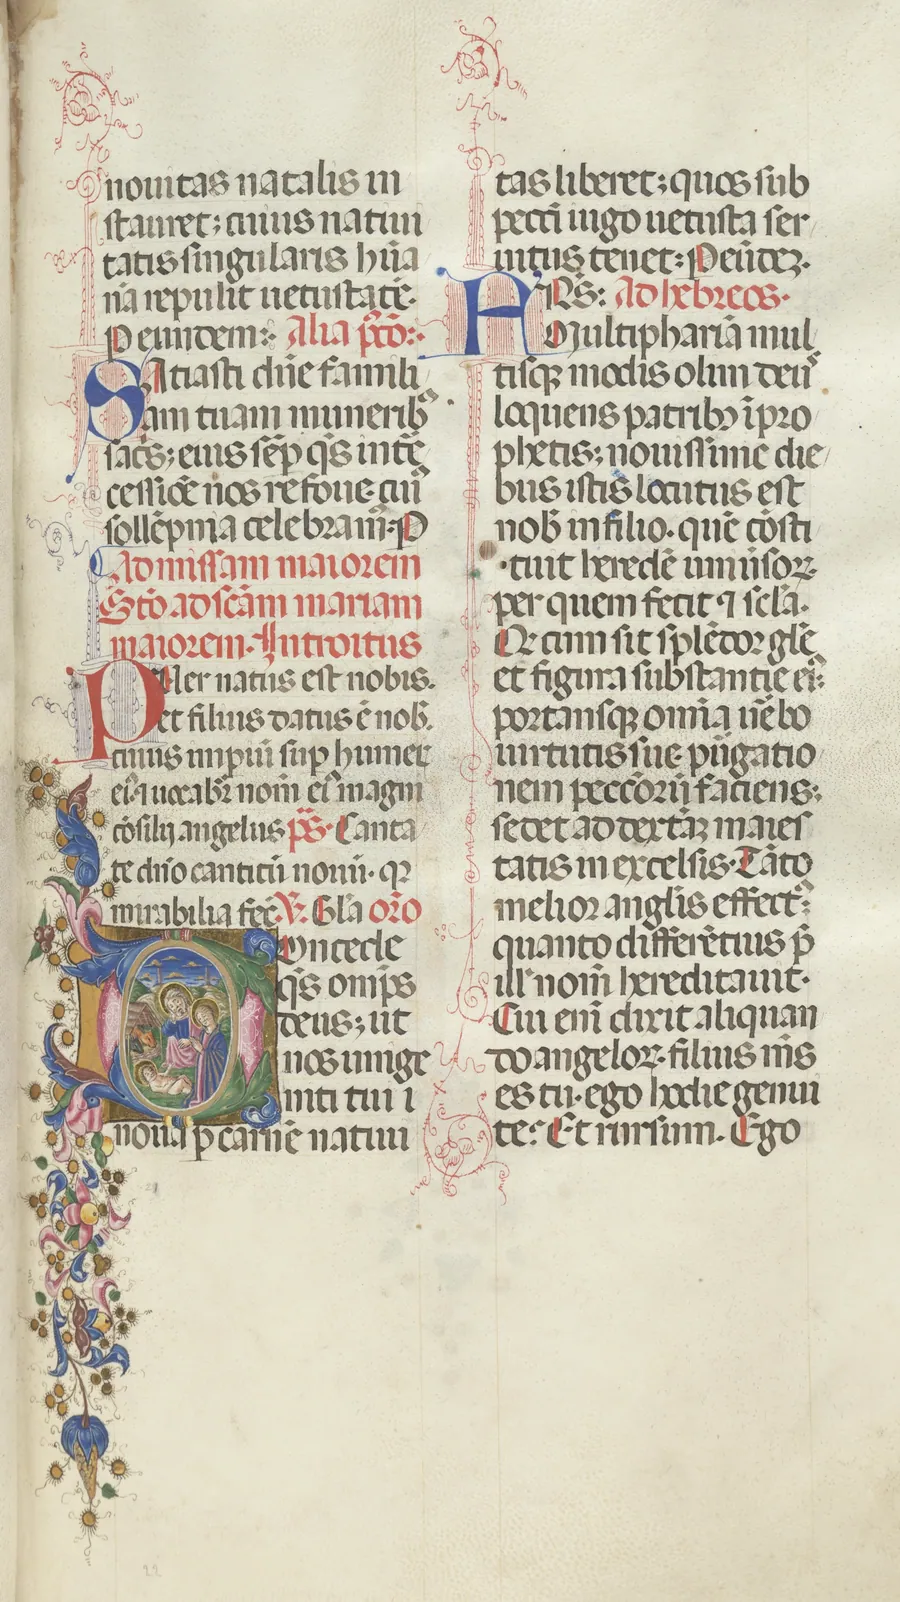 nouitas natalis in
stauret; cuius natiui
tatis singularis hūa
nā repulit uetustatē.
P eundem: Alia p̄co:
SAtiasti dn̄e famili
am tuam munerib9
sacs; eius sēp q̄s intē
cessiōe nos refoue. cui9
sollēpnia celebram9. P
Ad missam maiorem
Stō ad scām mariam
maiorem. Introitus
PUer natus est nobis.
et filius datus ē nob̄.
cuius impiū sup humer
ei9. ⁊ uocabr̄ nom̄ ei9 magni
cōsilij angelus ps̄. Canta
te dn̄o canticū nouū. qr
mirabilia fec̄. V. Gl̄a or̄o
COncede
q̄s omp̄s
deus; ut
nos unige
niti tui i
noua p carnē natiui
tas liberet; quos sub
pecc̄i iugo uetusta ser
uitus tenet: P eūdeꝫ.
Ad hebreos.
Multiphariā mul
tisqꝫ modis olim deus
loquens patribꝫ ī pro
phetis; nouissime die
bus istis locutus est
nob̄ in filio. quē cōsti
tuit heredē uniuisoꝝ
per quem fecit ⁊ sc̄la.
Qr cum sit splēdor glē
et figura substantie ei9:
portansqꝫ om̄ia uēbo
uirtutis sue. pūgatio
nem peccōrū faciens;
sedet ad dextāꝫ maies
tatis in excelsis. Tāto
melior angl̄is effect9:
quanto differētius p̄
ill̄ nom̄ hereditauit.
Cui eni dixit aliquan
do angeloꝝ. filius m̄s
es tu. ego hodie genui
te: Et rursum. Ego
22